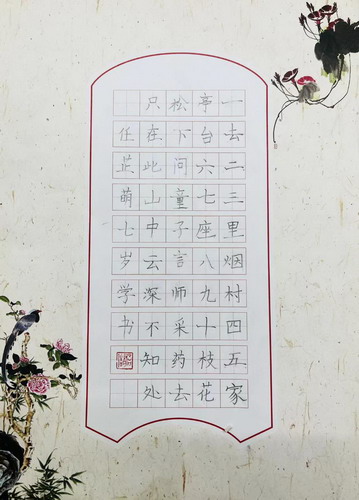 一去二三里烟村四五家
亭台六七座八九十枝花
松下问童子言师采药去
只在此山中云深不知处
任芷萌七岁学书